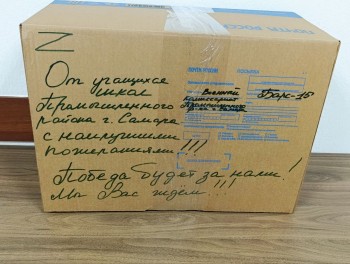 Z
От учащихся
школ
Промышленного
района г. Самара
с наилучшими
пожеланиями!!!
Победа будет за нами!
Мы Вас ждём!!!
Военный
комиссариат
Промышленного
р-на г. Самара
Барс-15
ПОЧТА РОССИИ